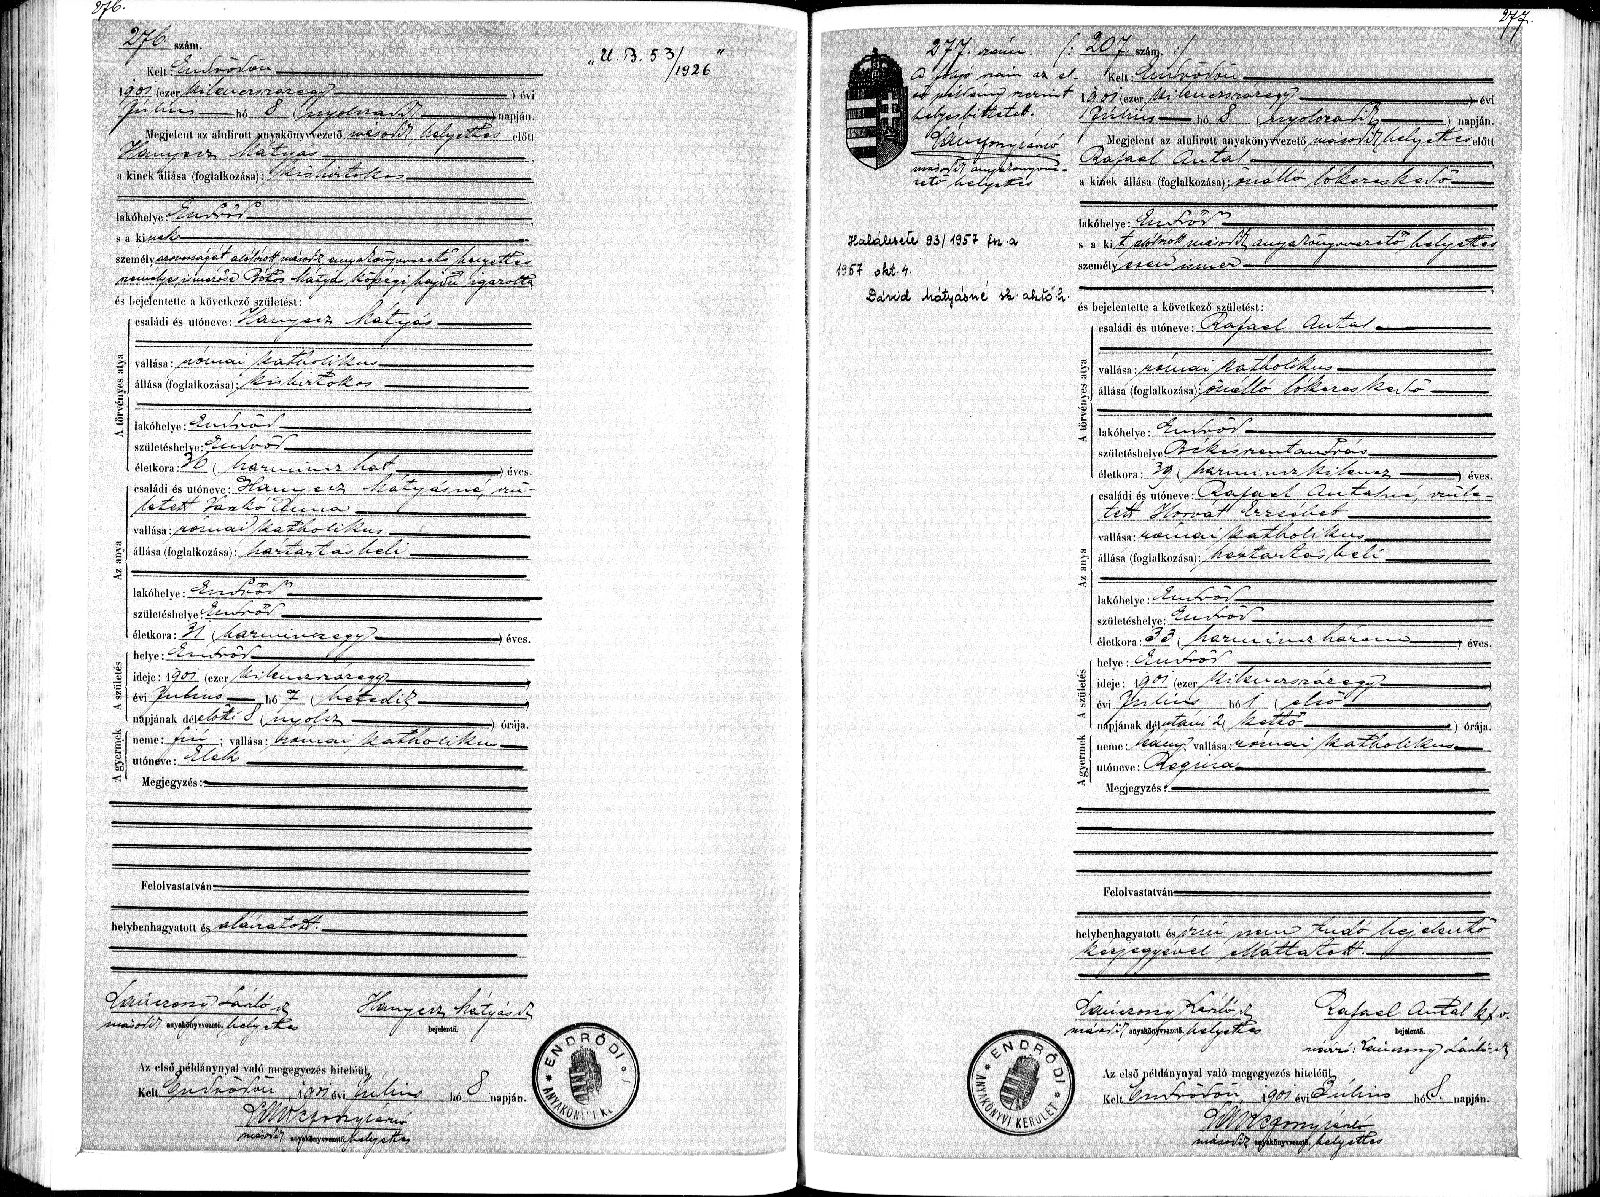 276.
276 szám.
„U. B. 53/1926"
Kelt Endrődön
1901 (ezer kilencszázegy) évi
Július hó 8 (nyolcadik) napján.
Megjelent az alulirott anyakönyvvezető másodk helyettes előtt
Hanyecz Mátyás
a kinek állása (foglalkozása): kisbirtokos
lakóhelye: Endrőd
s a kinek
személyazonosságát alólirott másodk anyakönyvvezető helyettes
Mátyás községi hajdu igazolta
és bejelentette a következő születést:
A törvényes atya
családi és utóneve: Hanyecz Mátyás
vallása: római katholikus
állása (foglalkozása): kisbirtokos
lakóhelye: Endrőd
születéshelye: Endrőd
életkora: 36 (harminczhat) éves.
Az anya
családi és utóneve: Hanyecz Mátyásné, szü-
letett Jankó Anna
vallása: római katholikus
állása (foglalkozása): háztartásbeli
lakóhelye: Endrőd
születéshelye: Endrőd
életkora: 31 (harminczegy) éves.
A születés
helye: Endrőd
ideje: 1901 (ezer kilencszázegy)
évi Julius hó 7 (hetedik)
napjának délelőtti 8 (nyolcz) órája.
A gyermek
neme: fiú; vallása: római katholikus
utóneve: Elek
Megjegyzés:
Felolvastatván
helybenhagyatott és aláiratott.
Hanyecz Mátyás
másodk anyakönyvvezető helyettes
bejelentő.
Az első példánynyal való megegyezés hiteléül.
Kelt Endrődön 1901 évi Július hó 8 napján.
másodk anyakönyvvezető helyettes
ENDRŐDI
ANYAKÖNYVI K
277.
277. szám (: 207. szám :)
helyesbitetett.
másodk anyakönyvve-
zető helyettes
Kelt Endrődön
1901 (ezer kilencszázegy) évi
Július hó 8 (nyolcadik) napján.
Megjelent az alulirott anyakönyvvezető másodk helyettes előtt
Rafael Antal
a kinek állása (foglalkozása): önálló lókereskedő
lakóhelye: Endrőd
s a kit alólirott másodk anyakönyvvezető helyettes
személyesen ismer
Halálesete 93/1957 fsz. a
1957 okt. 4.
Dávid Mátyásné
és bejelentette a következő születést:
A törvényes atya
családi és utóneve: Rafael Antal
vallása: római katholikus
állása (foglalkozása): önálló lókereskedő
lakóhelye: Endrőd
születéshelye Békésszentandrás
életkora: 39 (harminczkilencz) éves.
Az anya
családi és utóneve: Rafael Antalné, szüle-
tett Horvát Erzsébet
vallása: római katholikus
állása (foglalkozása): háztartásbeli
lakóhelye: Endrőd
születéshelye: Endrőd
életkora: 33 (harminczhárom) éves.
A születés
helye: Endrőd
ideje: 1901 (ezer kilencszázegy)
évi Julius hó 1 (első)
napjának délutáni 2 (kettő) órája.
A gyermek
neme: leány; vallása: római katholikus
utóneve: Regina
Megjegyzés:
Felolvastatván
helybenhagyatott és irni nem tudó bejelentő
kézjegyével ellátatott.
Rafael Antal
másodk anyakönyvvezető helyettes
bejelentő.
Az első példánynyal való megegyezés hiteléül.
Kelt Endrődön 1901 évi Július hó 8. napján.
másodk anyakönyvvezető helyettes
ENDRŐDI
ANYAKÖNYVI KERÜLET